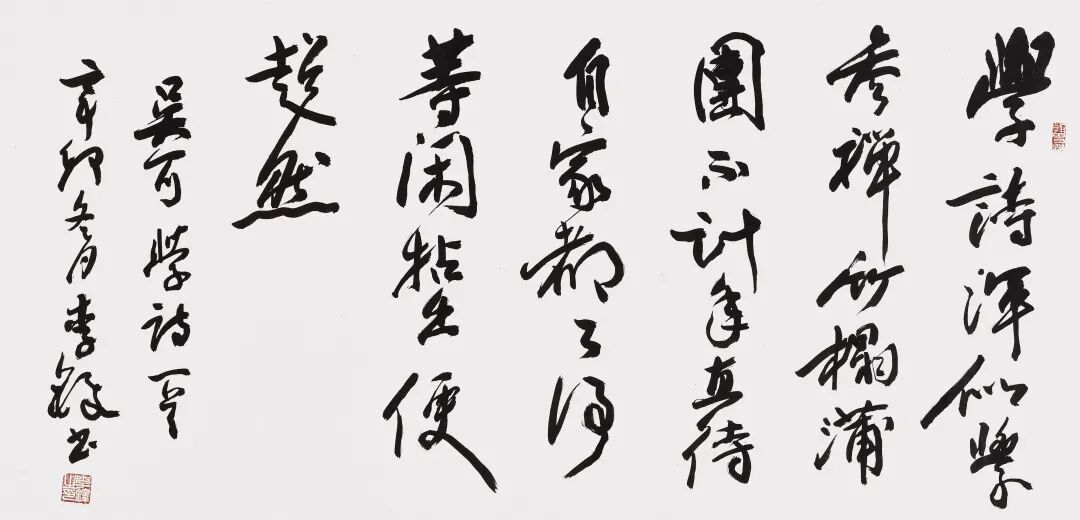 學詩渾似學
參禪竹榻蒲
團不計年直待
自家都了得
等閑拈出便
超然
吳可學詩一首
辛卯冬月李鐸書